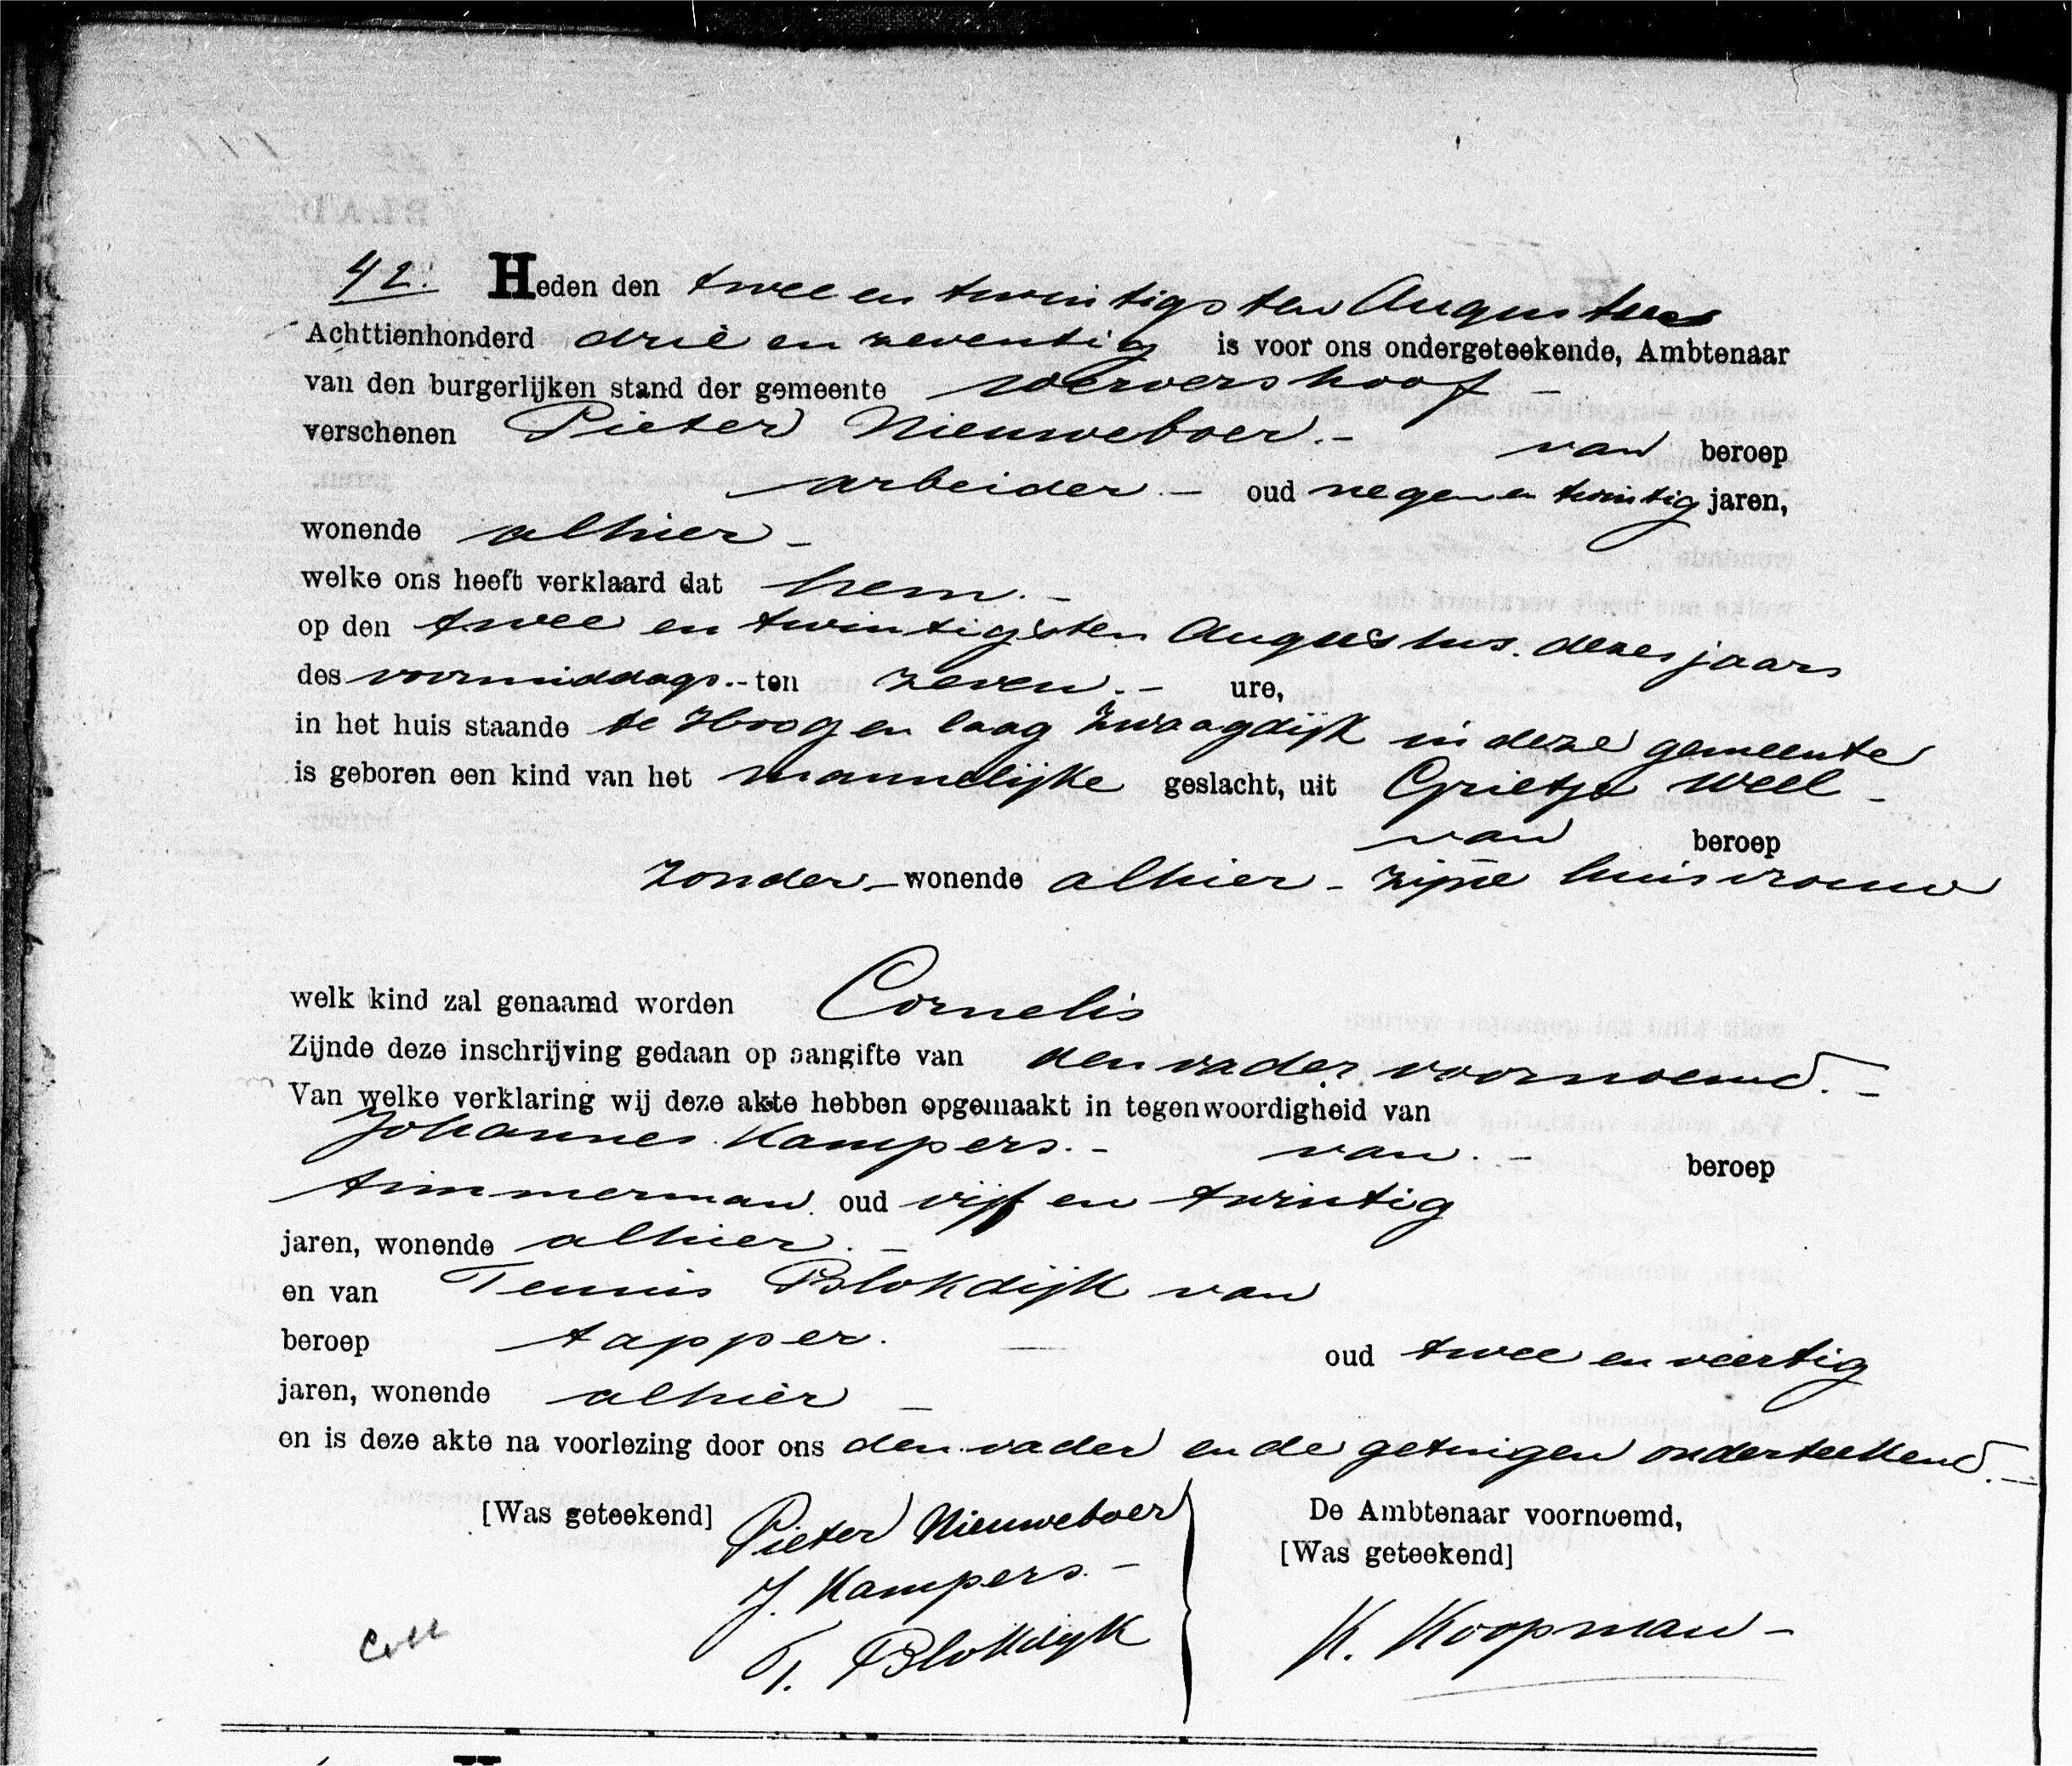 42. Heden den twee en twintigsten Augustus
Achttienhonderd drie en zeventig is voor ons ondergeteekende, Ambtenaar
van den burgerlijken stand der gemeente Wervershoof –
verschenen Pieter Nieuweboer. – van beroep
arbeider – oud negen en twintig jaren,
wonende alhier –
welke ons heeft verklaard dat hem. –
op den twee en twintigsten Augustus dezes jaars
des voormiddags. – ten zeven. – ure,
in het huis staande te Hoog en laag Zwaagdijk in deze gemeente
is geboren een kind van het mannelijke geslacht, uit Grietje Weel –
van beroep
Zonder – wonende alhier – zijne huisvrouw
welk kind zal genaamd worden Cornelis
Zijnde deze inschrijving gedaan op aangifte van den vader voornoemd. –
Van welke verklaring wij deze akte hebben opgemaakt in tegenwoordigheid van
Johannes Kampers. – van. – beroep
timmerman oud vijf en twintig
jaren, wonende alhier. –
en van Teunis Blokdijk van
beroep tapper. — oud twee en veertig
jaren, wonende alhier –
en is deze akte na voorlezing door ons den vader en de getuigen onderteekend. –
[Was geteekend] Pieter Nieuweboer De Ambtenaar voornoemd,
J. Kampers. – [Was geteekend]
T. Blokdijk K. Koopman –
Coll